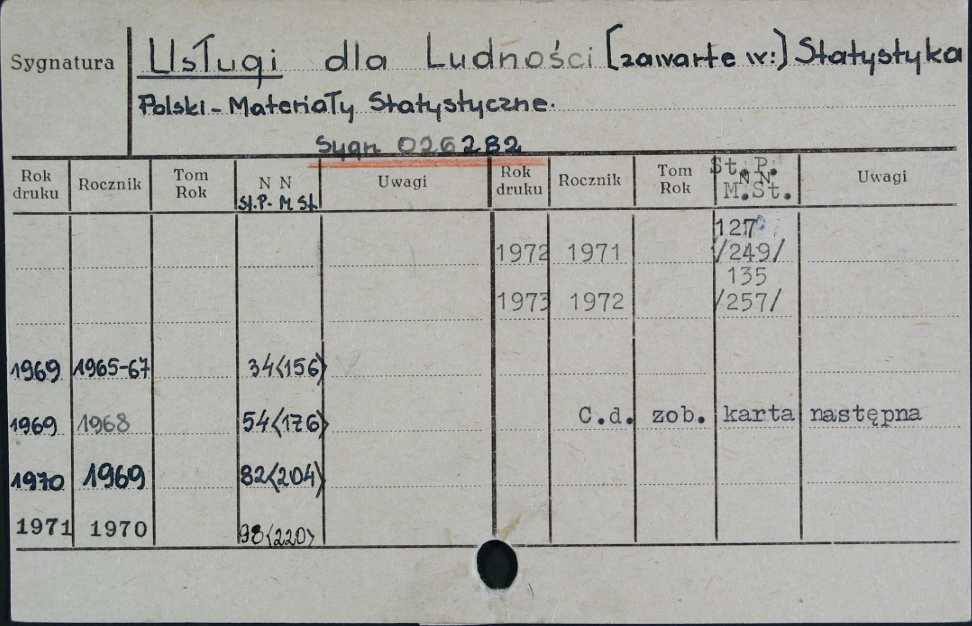 Sygnatura
Usługi dla Ludności [zawarte w:] Statystyka
Polski - Materiały Statystyczne.
Sygn 026282
Rok druku Rocznik Tom Rok N N St.P. - M St. Uwagi Rok druku Rocznik Tom Rok St.P. N N M.St. Uwagi
127
1972 1971 /249/
135
1973 1972 /257/
1969 1965-67 34<156>
1969 1968 54<176>
C.d. zob. karta następna
1970 1969 82<204>
1971 1970 98<220>